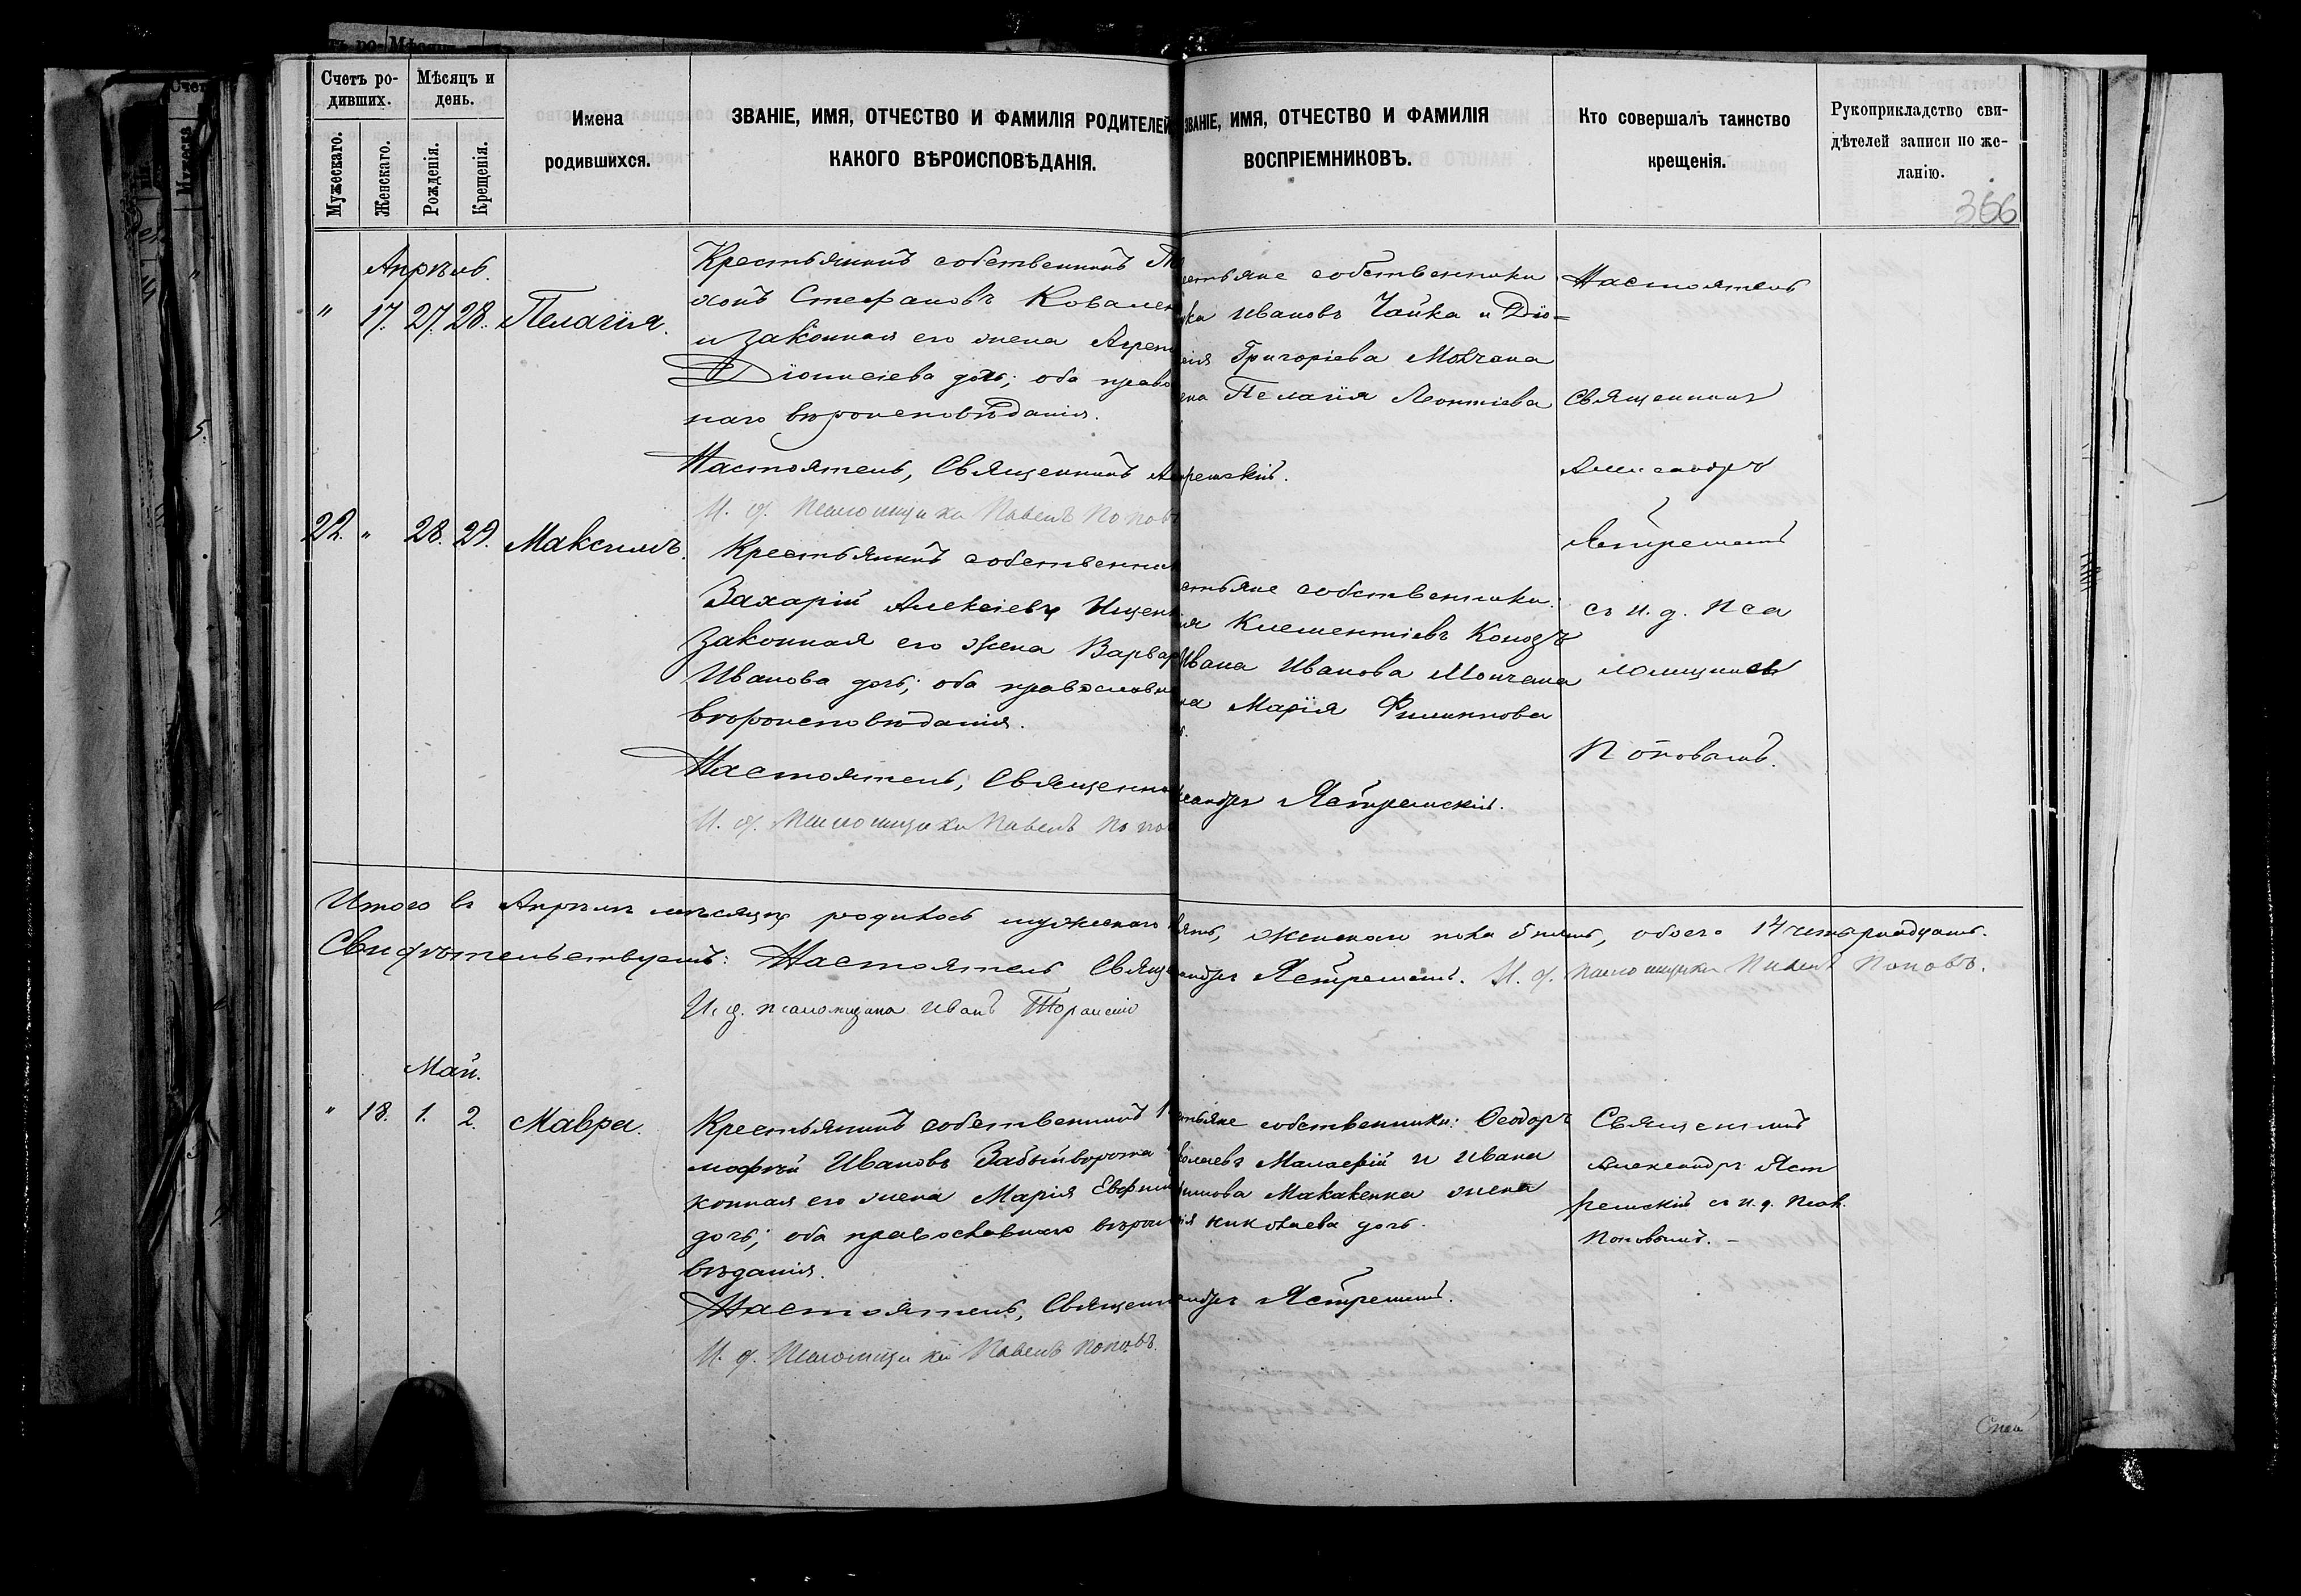 Счетъ ро-
дившихъ.
Мѣсяцъ и
день.
Мужескаго.
Женскаго.
Рожденія.
Крещенія.
Имена
родившихся.
ЗВАНІЕ, ИМЯ, ОТЧЕСТВО И ФАМИЛІЯ РОДИТЕЛЕЙ
КАКОГО ВѢРОИСПОВѢДАНІЯ.
ЗВАНІЕ, ИМЯ, ОТЧЕСТВО И ФАМИЛІЯ
ВОСПРІЕМНИКОВЪ.
Кто совершалъ таинство
крещенія.
Рукоприкладство сви-
дѣтелей записи по же-
ланію.
366
Апрѣль.
" 17. 27. 28. Пелагія.
Крестьянинъ собственникъ
хонъ Стефановъ Ковален
и законная его жена Агреп
Діонисіева дочь; оба право
наго вѣроисповѣданія.
Настоятель, Священникъ
И. д. Псаломщика Павелъ Поповъ
естьяне собственники
ивановъ Чайка и Діо=
Григоріева Мовчана
ена Пелагія Леонтіева
Настоятель
Священникъ
Александръ
Ястремскій
съ и. д. Пса
ломщикомъ
Поповымъ.
22. " 28. 29. Максимъ.
Крестьянинъ собственник
Захарій Алексіевъ Ищен
законная его жена Варвар
Иванова дочь; оба православн
вѣроисповѣданія.
Настоятель, Священни
И. д. Псаломщика Павелъ Попов
стьяне собственники:
Клементіевъ
Ивана Иванова Мовчана
на Марія Филиппова
сандръ Ястремскій.
Итого въ Апрѣлѣ мѣсяцѣ родилось мужескаго вять, женскаго обоего 14 четырнадцать.
Свидѣтельствуемъ: Настоятель Свяще андръ Ястремскій. И. д. Псаломщика Павелъ Поповъ.
И. д. псаломщика Иванъ
Май.
" 18. 1. 2. Мавра.
Крестьянинъ собственникъ
мофей Ивановъ Забыйворота
конная его жена Марія Евфим
дочь; оба православнаго вѣроис
вѣданія.
Настоятель, Священн
И. д. Псаломщика Павелъ Поповъ.
стьяне собственники: Ѳеодоръ
и Ивана
Макавенка жена
ія николаева дочь.
андръ Ястремскій.
Священникъ
Александръ Яст
ремскій съ и. д. Псал.
Поповымъ. –